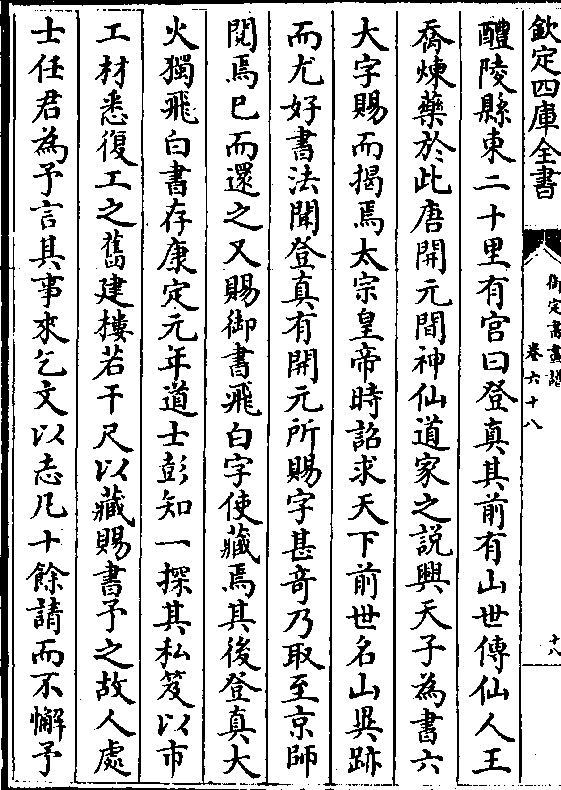 欽定四庫全書
御定書畫譜
卷六十八
十八
醴陵縣東二十里有宫曰登真其前有山世傳仙人王
喬煉藥於此唐開元間神仙道家之説興天子為書六
大字賜而揭焉太宗皇帝時詔求天下前世名山異跡
而尤好書法聞登真有開元所賜字甚竒乃取至京師
閱焉已而還之又賜御書飛白字使藏焉其後登真大
火獨飛白書存康定元年道士彭知一探其私笈以市
工材悉復工之舊建樓若干尺以藏賜書予之故人處
士任君為予言其事來乞文以志凡十餘請而不懈予